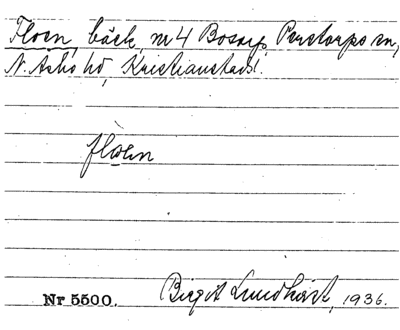 Floen, bäck, nr 4 Bosarp, Perstorps sn,
N. Åsbo hd, Kristianstads l.
floen
Nr 5500. Birgit Lundkvist, 1936.